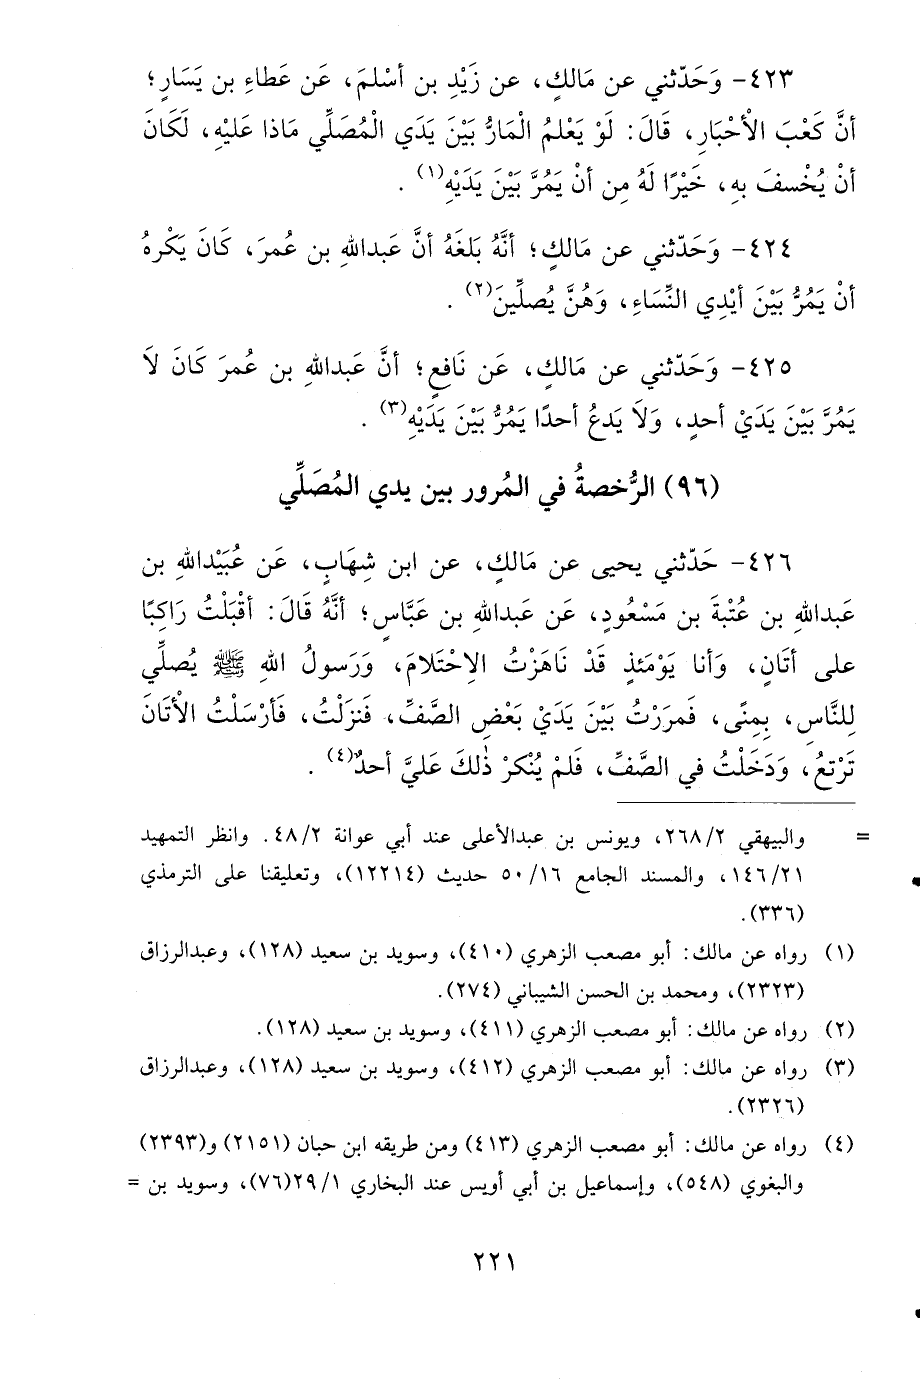 ٤٢٣- وَحَدّثني عن مَالكٍ، عن زَيْدِ بن أسْلمَ، عَن عَطاءِ بن يَسَارٍ؛
أنَّ كَعْبَ الْأحْبَارِ، قَالَ: لَوْ يَعْلمُ الْمَارُّ بَيْنَ يَدَي الْمُصَلِّي مَاذا عَليْهِ، لَكَانَ
أنْ يُخْسفَ بهِ، خَيْرًا لَهُ مِن أنْ يَمُرَّ بَيْنَ يَدَيْهِ(١) .
٤٢٤- وَحَدّثني عن مَالكٍ؛ أنَّهُ بَلغَهُ أنَّ عَبدالله بن عُمرَ، كَانَ يَكْرهُ
أنْ يَمُرُّ بَيْنَ أيْدِي النِّسَاءِ، وَهُنَّ يُصلِّينَ(٢) .
٤٢٥- وَحَدّثني عن مَالكٍ، عَن نَافعٍ؛ أنَّ عَبدالله بن عُمرَ كَانَ لاَ
يَمُرَّ بَيْنَ يَدَيْ أحدٍ، وَلاَ يَدعُ أحدًا يَمُرُّ بَيْنَ يَدَيْهِ(٣) .
(٩٦) الرُّخصةُ في المُرور بين يدي المُصَلِّي
٤٢٦- حَدّثني يحيى عن مَالكٍ، عن ابن شِهَابٍ، عَن عُبَيْدالله بن
عَبدالله بن عُتْبةَ بن مَسْعُودٍ، عَن عَبدالله بن عَبَّاسٍ؛ أنَّهُ قَالَ: أقْبَلْتُ رَاكِبًا
على أتَانٍ، وَأنا يَوْمَئذٍ قَدْ نَاهَزْتُ الِاحْتلامَ، وَرَسولُ اللهِ ﷺ يُصلِّي
لِلنَّاسِ، بِمِنًى، فَمرَرْتُ بَيْنَ يَدَيْ بَعْضِ الصَّفِّ، فَنزَلْتُ، فَأرْسَلْتُ الأتَانَ
تَرْتعُ، وَدَخَلْتُ في الصَّفِّ، فَلمْ يُنْكرْ ذٰلكَ عَليَّ أحدٌ(٤) .
= والبيهقي ٢٦٨/٢، ويونس بن عبدالأعلى عند أبي عوانة ٤٨/٢. وانظر التمهيد
١٤٦/٢١، والمسند الجامع ٥٠/١٦ حديث (١٢٢١٤)، وتعليقنا على الترمذي
(٣٣٦).
(١) رواه عن مالك: أبو مصعب الزهري (٤١٠)، وسويد بن سعيد (١٢٨)، وعبدالرزاق
(٢٣٢٣)، ومحمد بن الحسن الشيباني (٢٧٤).
(٢) رواه عن مالك: أبو مصعب الزهري (٤١١)، وسويد بن سعيد (١٢٨).
(٣) رواه عن مالك: أبو مصعب الزهري (٤١٢)، وسويد بن سعيد (١٢٨)، وعبدالرزاق
(٢٣٢٦).
(٤) رواه عن مالك: أبو مصعب الزهري (٤١٣) ومن طريقه ابن حبان (٢١٥١) و(٢٣٩٣)
والبغوي (٥٤٨)، وإسماعيل بن أبي أويس عند البخاري ٢٩/١(٧٦)، وسويد بن =
٢٢١